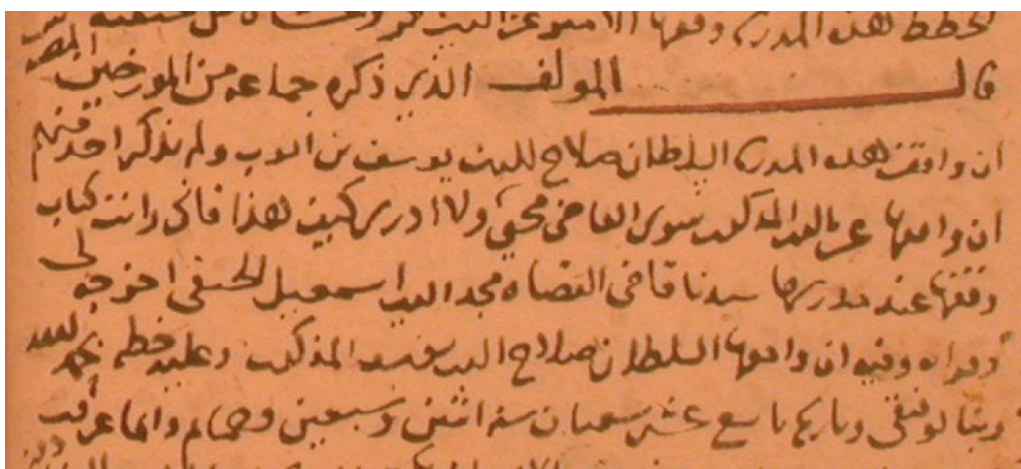 الخطط هذه المدرسة وقفها الامير عز الدين
قال المولف الذي ذكره جماعه من المورخين
ان واقف هذه المدرسة السلطان صلاح الدين يوسف بن ايوب ولم يذكر احد منهم
ان واقفها عز الدين المذكور سوى القاضي محيي ولا ادري كيف هذا فاني رايت كتاب
وقفها عند مدرسها سيدنا قاضي القضاه مجد الدين اسمعيل الحنفي اخرجه لي
وقراته وفيه ان واقفها السلطان صلاح الدين يوسف المذكور وعليه خطه الحمد لله
وبه توفيقي وتاريخه تاسع عشر شعبان سنه اثنتين وسبعين وخمسمايه وانما عرفت